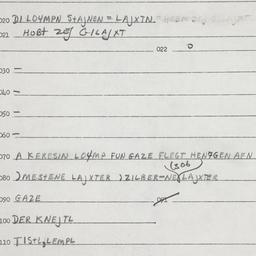 020 DI LOYMPN STAJNEN = LAJXTN.
021 HOBT ZEJ GILAJXT
022 0
030 —
040 —
050 —
060 —
070 A KERESIN LOYMP FUN GAZE FLEGT HENGEN AFN
(306
080 ) MESTENE LAJXTER ) ZILBER-NE LAJXTER
090 GAZE
091
100 DER KNEJTL
110 TISHLEMPL